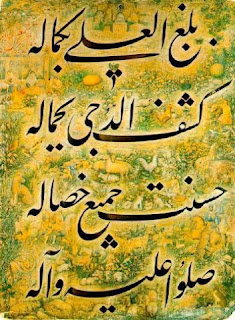 بلغ العلے بکماله
کشف الدجی بجماله
حسنت جمیع خصاله
صلوا علیه وآله